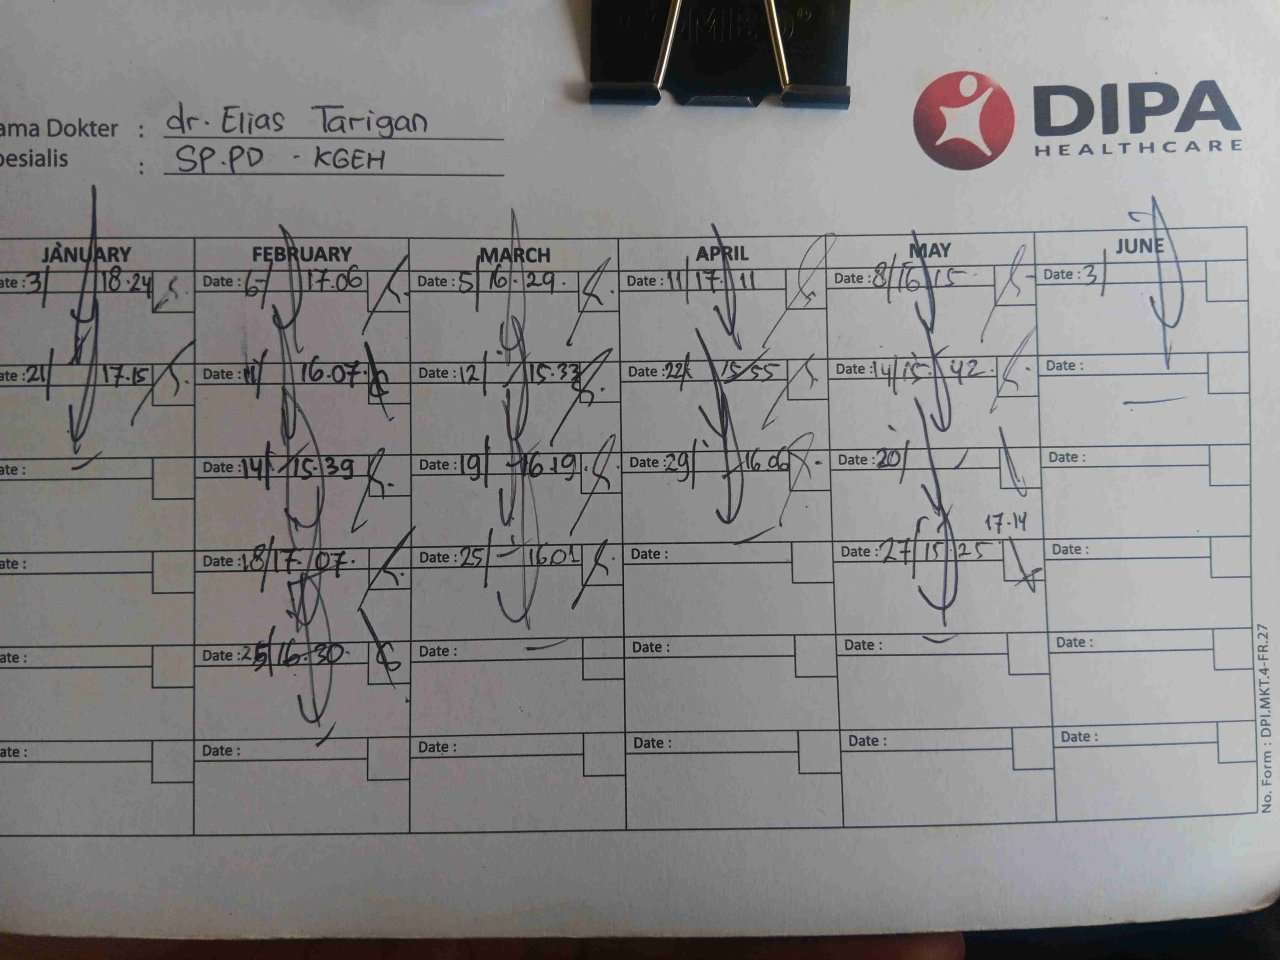 ama Dokter : dr. Elias Tarigan
pesialis : SP.PD - KGEH
DIPA
HEALTHCARE
JANUARY FEBRUARY MARCH APRIL MAY JUNE
ate: 3/ 18.24 Date: 6/ 17.06 Date: 5/ 16.29. Date: 11/ 17.11 Date: 8/ 16 15 Date: 3/
ate: 21/ 17.15 Date: 11/ 16.07. Date: 12/ 15.33 Date: 22/ 15/55 Date: 14/ 15. 42. Date:
ate: Date: 14/ 15.39 Date: 19/ 16.19 Date: 29/ 16 06 Date: 20/ Date:
17.14
ate: Date: 18/ 17. 07. Date: 25/ 16.01 Date: Date: 27/ 15.25 Date:
ate: Date: 25/ 16.30. Date: Date: Date: Date:
ate: Date: Date: Date: Date: Date:
No. Form : DPI.MKT.4-FR.27